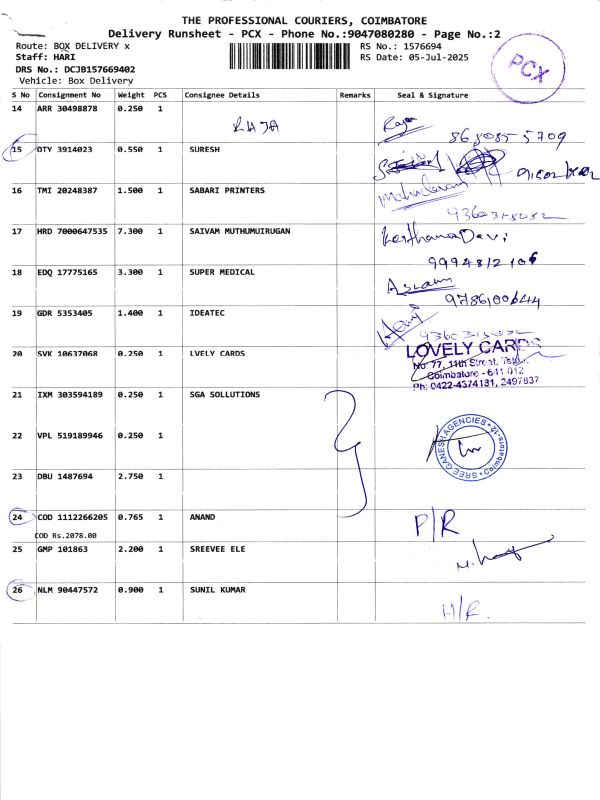 THE PROFESSIONAL COURIERS, COIMBATORE
Delivery Runsheet - PCX - Phone No.:9047080280 - Page No.:2
Route: BOX DELIVERY x
RS No.: 1576694
Staff: HARI
RS Date: 05-Jul-2025
DRS No.: DCJB157669402
Vehicle: Box Delivery
PCX
S No Consignment No Weight PCS Consignee Details Remarks Seal & Signature
14 ARR 30498878 0.250 1
RAJA
Rajan
15 OTY 3914023 0.550 1 SURESH
16 TMI 20248387 1.500 1 SABARI PRINTERS
17 HRD 7000647535 7.300 1 SAIVAM MUTHUMUIRUGAN
KeerthanaDevi
18 EDQ 17775165 3.300 1 SUPER MEDICAL
9786100644
19 GDR 5353405 1.400 1 IDEATEC
20 SVK 10637068 0.250 1 LVELY CARDS
LOVELY CARDS
No: 77, 11th Street,
Coimbatore - 641 012
Ph: 0422-4374131, 2497837
21 IXM 303594189 0.250 1 SGA SOLLUTIONS
22 VPL 519189946 0.250 1
SREE GANESH AGENCIES * Coimbatore-12 *
23 DBU 1487694 2.750 1
24 COD 1112266205 0.765 1 ANAND P/R
COD Rs.2078.00
25 GMP 101863 2.200 1 SREEVEE ELE
26 NLM 90447572 0.900 1 SUNIL KUMAR
H/R.